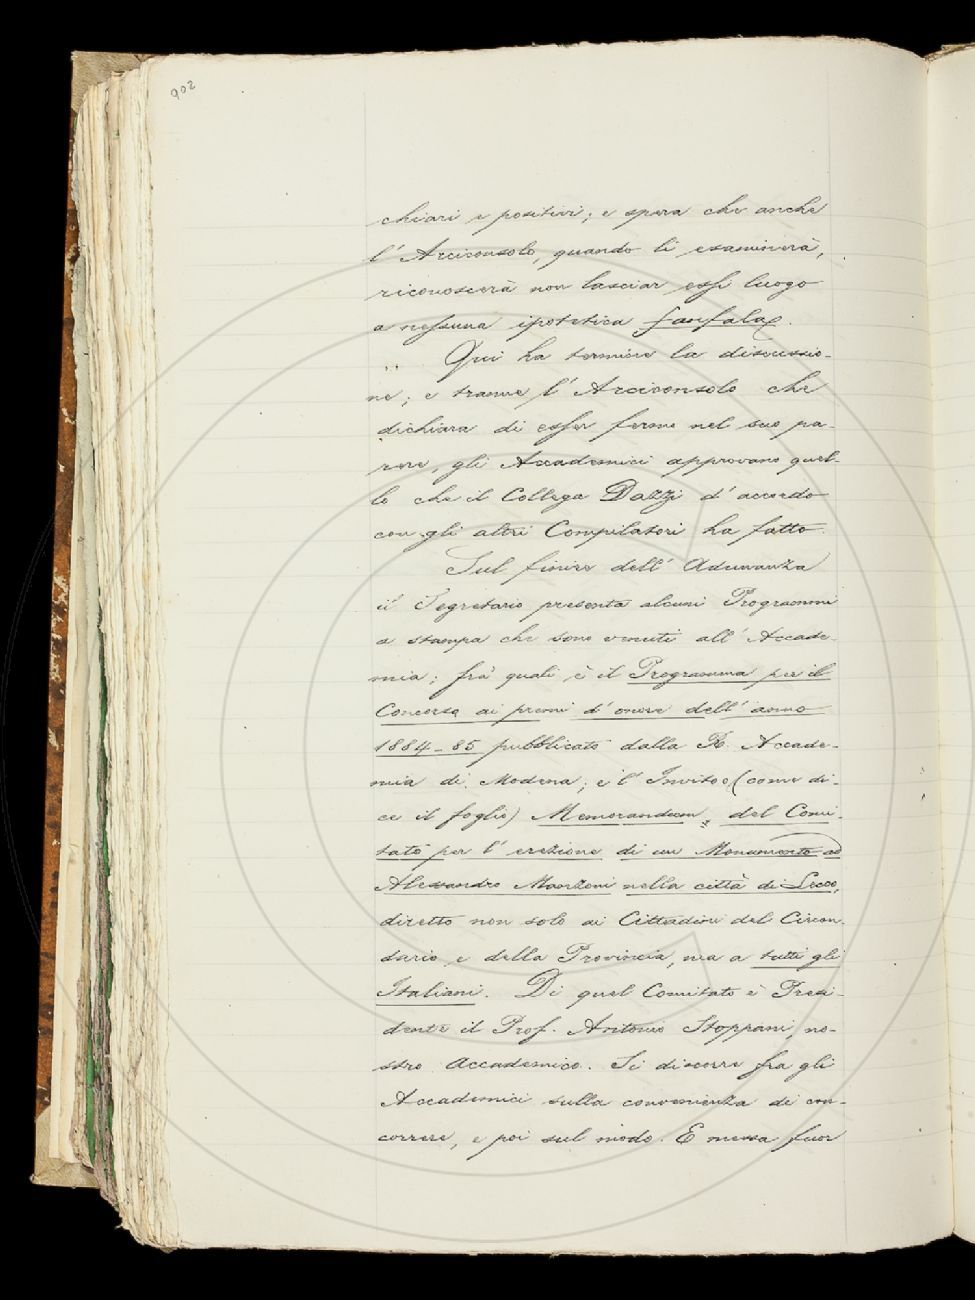 902
chiari e positivi; e spera che anche
l'Arciconsolo, quando li esaminerà,
riconoscerà non lasciar essi luogo
a nessuna ipotetica
Qui ha termine la discussio-
ne; e tranne l'Arciconsolo che
dichiara di esser fermo nel suo pa-
rere, gli Accademici approvano quel-
lo che il Collega Dazzi d'accordo
con gli altri Compilatori ha fatto.
Sul finire dell'Adunanza
il Segretario presenta alcuni Programmi
a stampa che sono venuti all'Accade-
mia; fra quali è il Programma per il
Concorso ai premi d'onore dell'anno
1884-85 pubblicato dalla R. Accade-
mia di Modena; e l'Invito (come di-
ce il foglio) Memorandum, del Comi-
tato per l'erezione di un Monumento ad
Alessandro Manzoni nella città di Lecco,
diretto non solo ai Cittadini del Circon-
dario e della Provincia, ma a tutti gli
Italiani. Di quel Comitato è Presi-
dente il Prof. Antonio Stoppani, no-
stro Accademico. Si discorre fra gli
Accademici sulla convenienza di con-
correre, e poi sul modo. E messa fuor